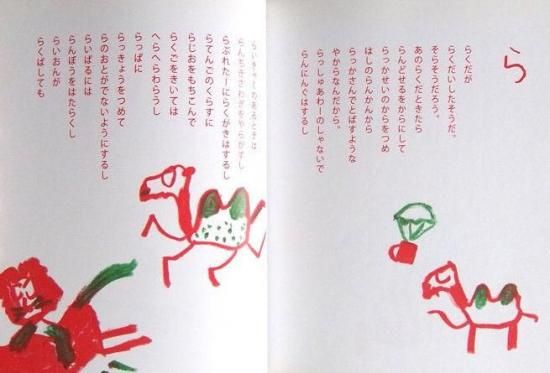 ら
らくだが
らくだいしたそうだ。
そらそうだろう。
あのらくだときたら
らんどせるをからにして
らっかせいのからをつめ
はしのらんかんから
らっかさんでとばすような
やからなんだから。
らっしゅあわーのしゃないで
らんにんぐはするし
らんちきさわぎをやらかすし
らぶれたーにらくがきはするし
らてんごのくらすに
らじおをもちこんで
らくごをきいては
へらへらわらうし
らっぱに
らっきょうをつめて
らのおとがでないようにするし
らいばるには
らんぼうをはたらくし
らいおんが
らくばしても